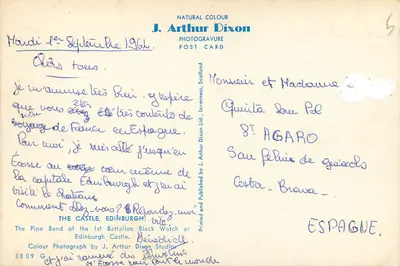 NATURAL COLOUR
J. Arthur Dixon
PHOTOGRAVURE
POST CARD
Mardi 1er Septembre 1964.
Chers tous.
Je m'amuse très bien. J'espère
que vous avez été très contents du
voyage de France en Espagne.
Pour moi, je suis allé jusqu'en
Ecosse au coeur même de
la capitale Edinburgh et j'ai
visité le chateau
Comment allez-vous? Répondez-moi
vite
Bénédicte
et j'ai ramené des
d'Ecosse pour tout le monde
Monsieur et Madame
Quinta San Pol
St AGARO
San Feliu de Guixols
Costa-Brava-
ESPAGNE.
Printed and Published by J. Arthur Dixon Ltd., Inverness, Scotland
THE CASTLE, EDINBURGH
The Pipe Band of the 1st Battalion Black Watch at
Edinburgh Castle.
Colour Photograph by J. Arthur Dixon Studio
3809 G